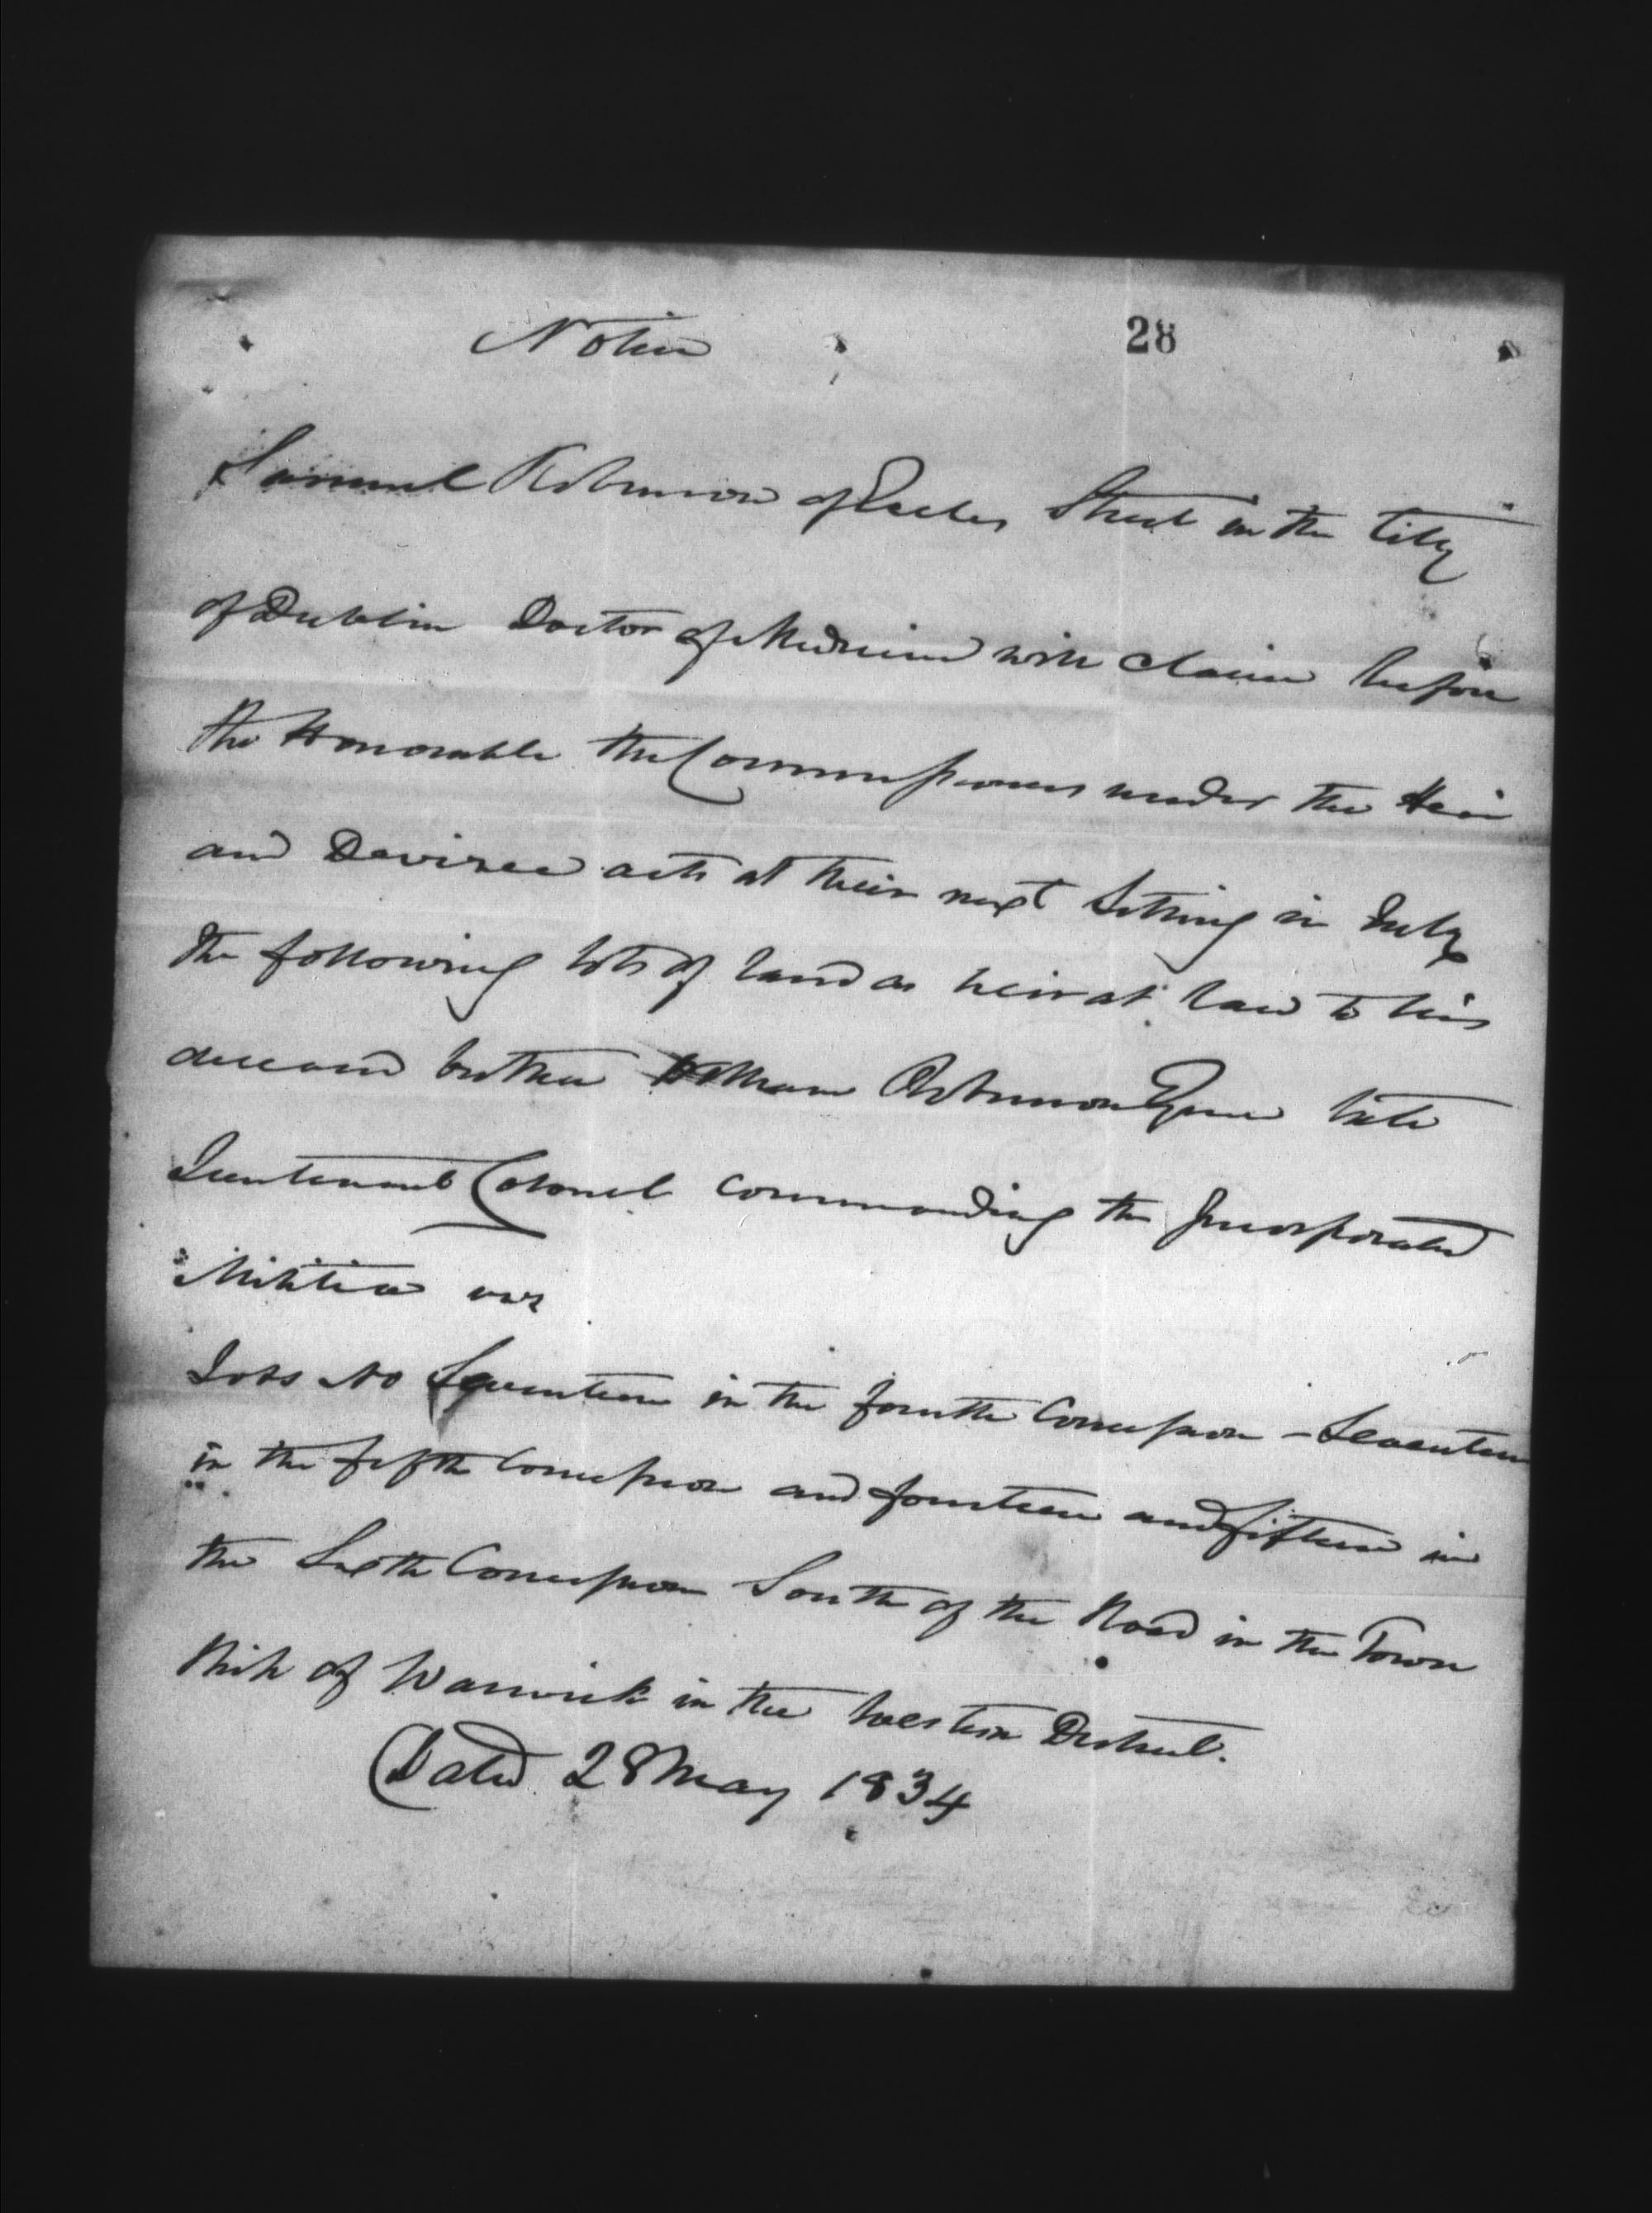 Notice
28
Samuel Robinson of Eccles Street in the City
of Dublin Doctor of Medicine will claim before
the Honorable the Commissioners under the Heir
and Devisee acts at their next Sitting in July
the following lots of land as heir at law to his
deceased brother William Robinson Esquire late
Lieutenant Colonel commanding the Incorporated
Militia viz
Lots No Seventeen in the fourth Concession - Seventeen
in the fifth Concession and fourteen and fifteen in
the Sixth Concession South of the Road in the Town
Ship of Warwick in the Western District.
Dated 28 May 1834